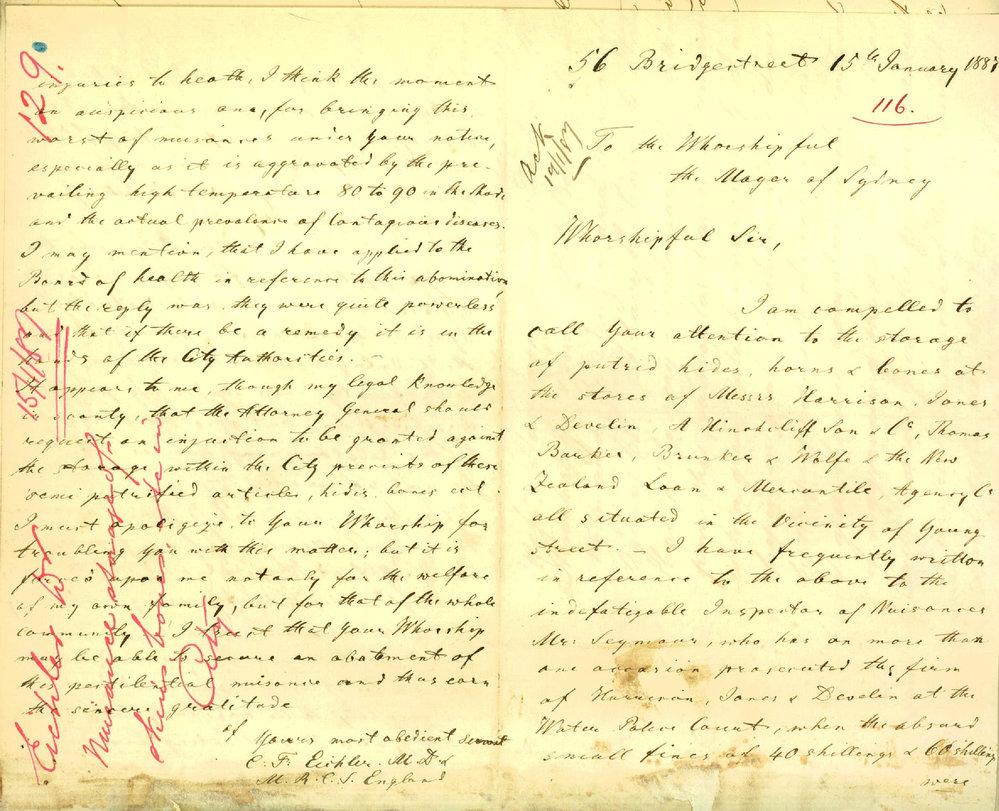 56 Bridgestreet 15th January 1887
116.
Ack 19/1/87
To the Whorshipful
the Mayor of Sydney
Whorshipful Sir,
I am compelled to
call Your attention to the storage
of putrid hides, horns & bones at
the stores of Messrs Harrison, Jones
& Develin, A Hinchcliff Son & Co, Thomas
Barker, Brunker & Wolfe & the New
Zealand Loan & Mercantile, Agency Co
all situated in the Vicinity of Young
street. — I have frequently written
in reference to the above to the
indefatigable Inspector of Nuisances
Mr. Seymour, who has on more than
one occasion prosecuted the firm
of Harrison, Jones & Develin at the
Water Police Court, when the absurd
small fines of 40 shillings & 60 shillings
were
injuries to heath, I think the moment
an auspicious one, for bringing this
worst of nuisances under Your notice,
especially as it is aggravated by the pre-
vailing high temperature 80 to 90 in the Shade
and the actual prevalence of Contagious diseases.
I may mention, that I have applied to the
Board of health in reference to this abomination,
but the reply was, they were quite powerless
and that if there be a remedy it is in the
hands of the City Authorities. —
It appears to me, though my legal Knowledge
is scanty, that the Attorney General should
request an injuction to be granted against
the storage within the City precints of these
semi putrified articles, hides, bones ect.
I must apoligize to Your Whorship for
troubling You with this matter; but it is
forced upon me not only for the welfare
of my own family, but for that of the whole
community. I trust that Your Whorship
may be able to secure an abatement of
this pestilential nuisance and thus earn
the sincere gratitude
of Yours most obedient Servant
C. F. Eichler. M.D. &
M. R. C. S. England
129.
15/1/87
Eichler Dr
Nuisance storage of
skins bones &c in
City